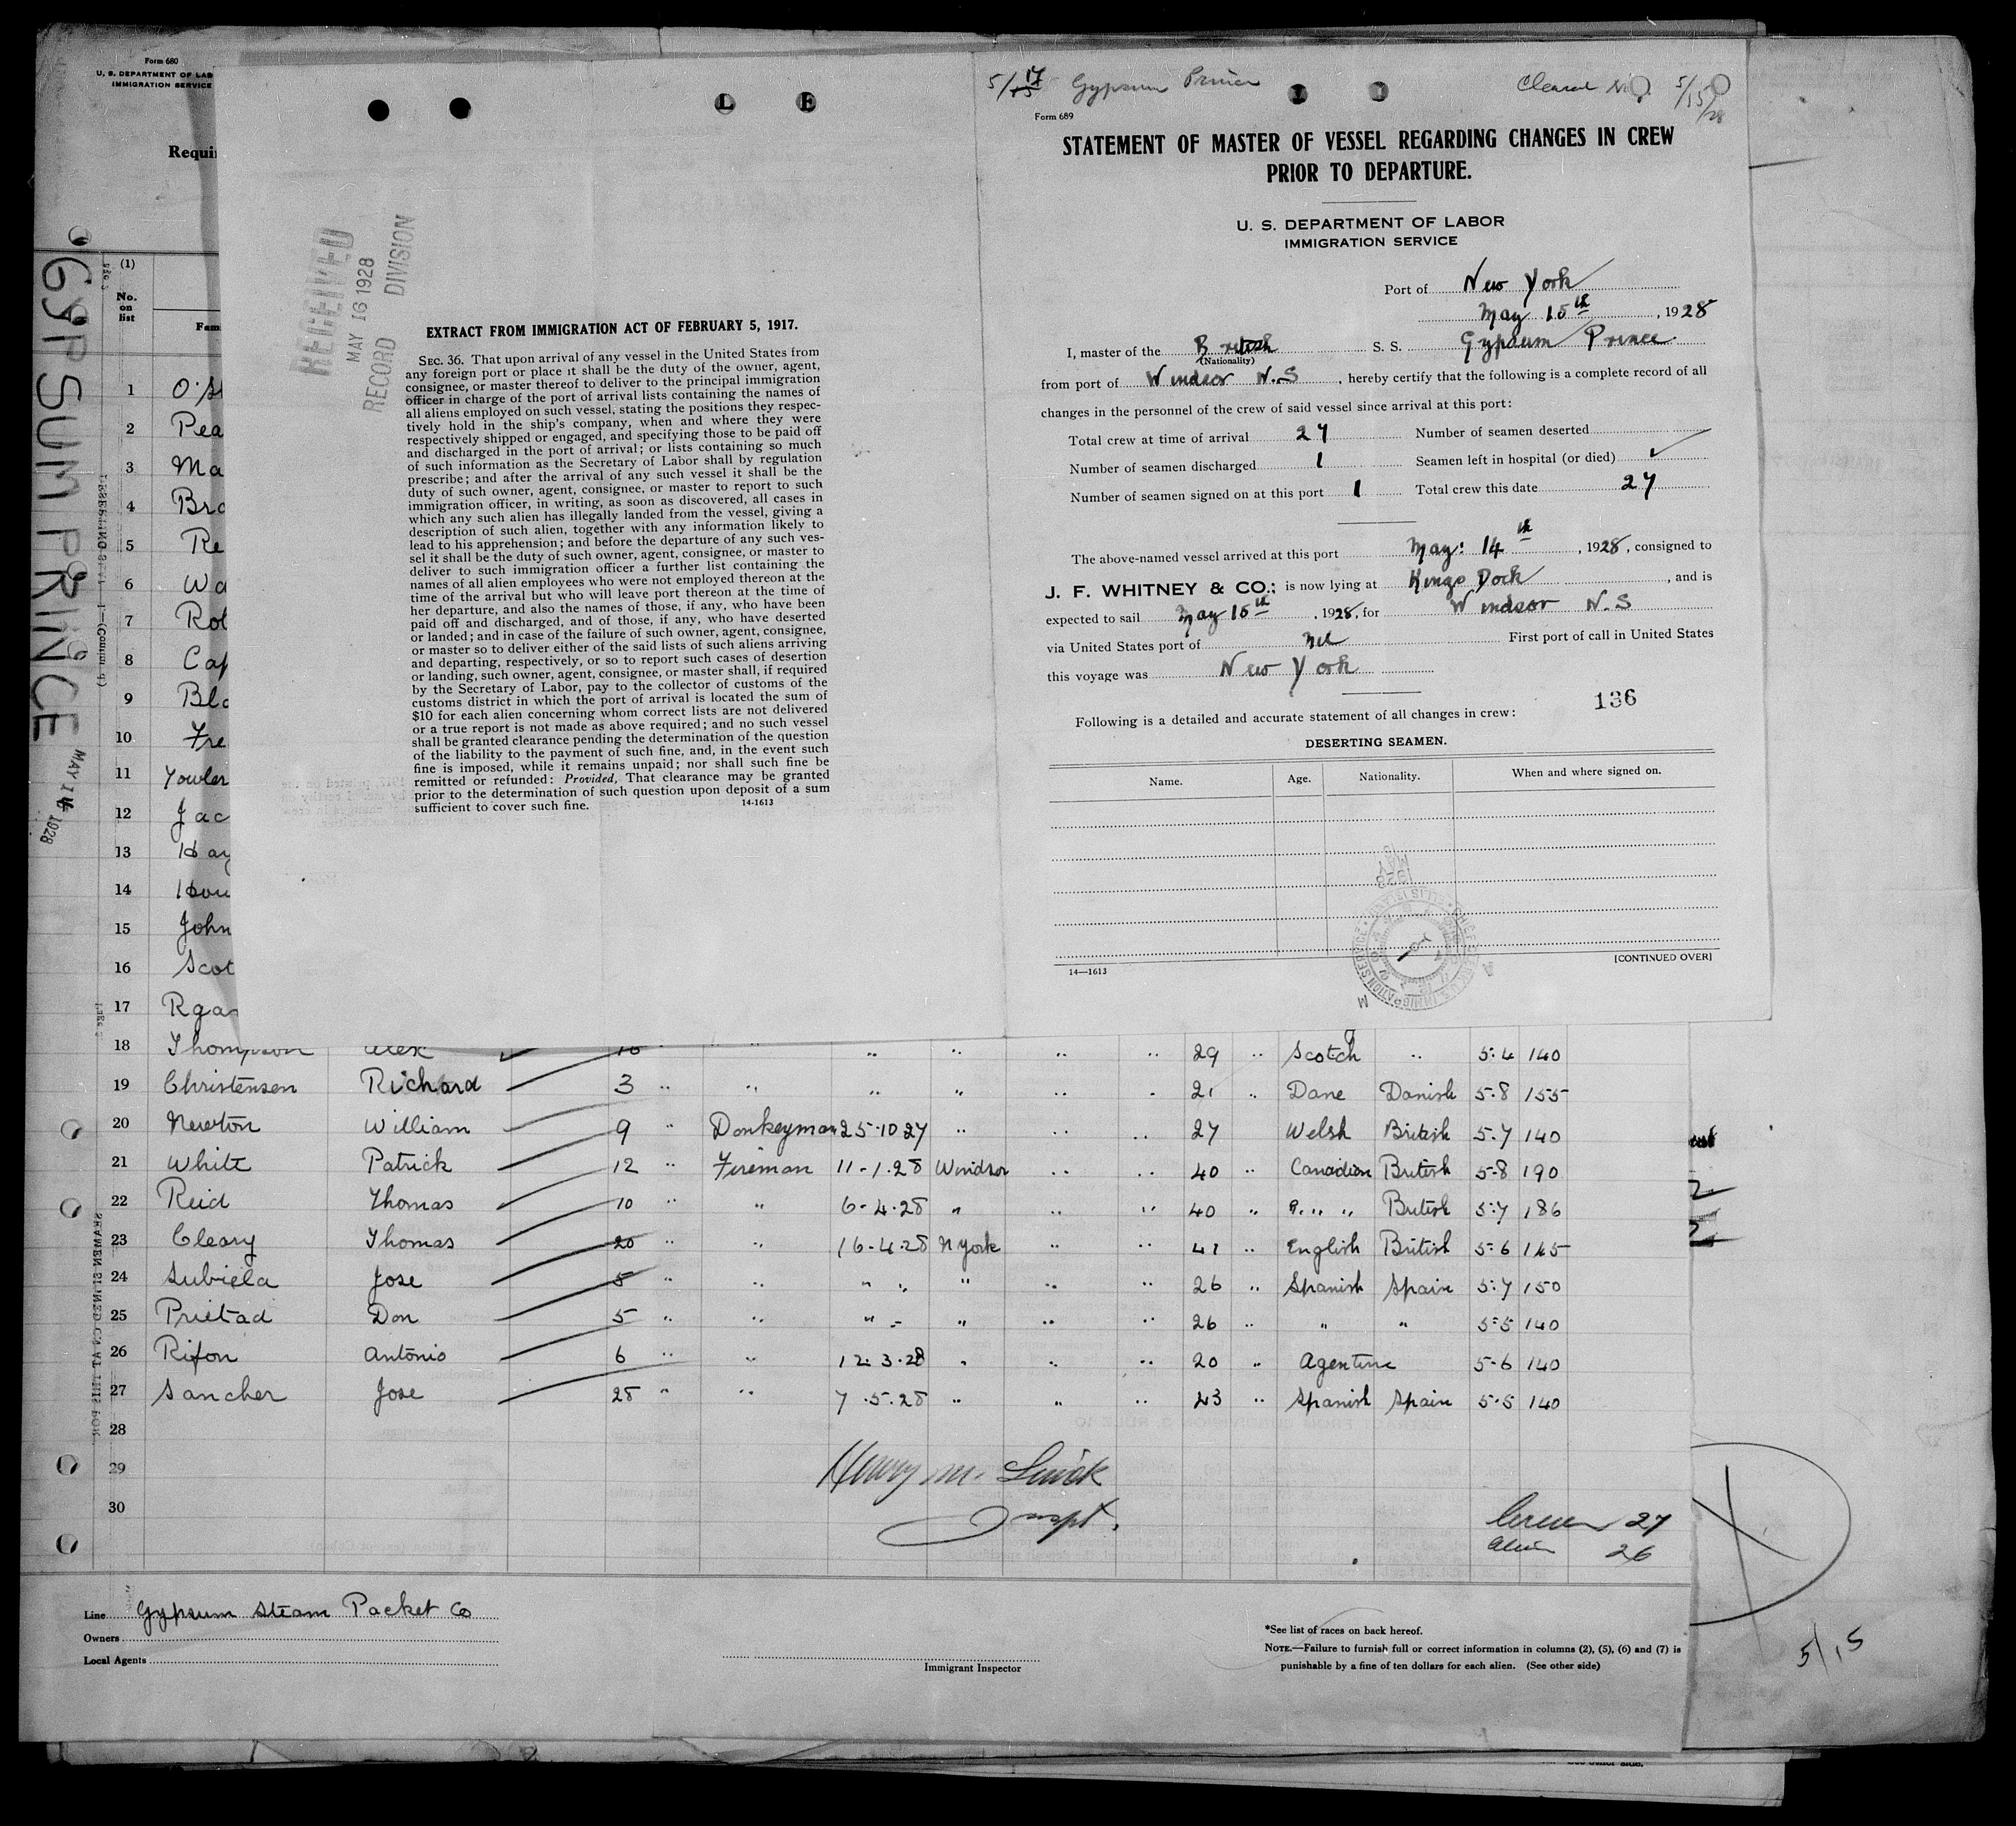 Form 680
U. S. DEPARTMENT OF LAB
IMMIGRATION SERVICE
Requi
GYPSUM PRINCE
MAY 14 1928
(1)
No.
on
list
Fam
1 O'S
2 Pea
3 Ma
4 Bro
5 Re
6 Wa
7 Rot
8 Cap
9 Bla
10 Fre
11 Fowler
12 Jac
13 Hay
14 Hou
15 John
16 Scot
17 Rga
RECEIVED
MAY 16 1928
RECORD DIVISION
L E
EXTRACT FROM IMMIGRATION ACT OF FEBRUARY 5, 1917.
SEC. 36. That upon arrival of any vessel in the United States from
any foreign port or place it shall be the duty of the owner, agent,
consignee, or master thereof to deliver to the principal immigration
officer in charge of the port of arrival lists containing the names of
all aliens employed on such vessel, stating the positions they respec-
tively hold in the ship's company, when and where they were
respectively shipped or engaged, and specifying those to be paid off
and discharged in the port of arrival; or lists containing so much
of such information as the Secretary of Labor shall by regulation
prescribe; and after the arrival of any such vessel it shall be the
duty of such owner, agent, consignee, or master to report to such
immigration officer, in writing, as soon as discovered, all cases in
which any such alien has illegally landed from the vessel, giving a
description of such alien, together with any information likely to
lead to his apprehension; and before the departure of any such ves-
sel it shall be the duty of such owner, agent, consignee, or master to
deliver to such immigration officer a further list containing the
names of all alien employees who were not employed thereon at the
time of the arrival but who will leave port thereon at the time of
her departure, and also the names of those, if any, who have been
paid off and discharged, and of those, if any, who have deserted
or landed; and in case of the failure of such owner, agent, consignee,
or master so to deliver either of the said lists of such aliens arriving
and departing, respectively, or so to report such cases of desertion
or landing, such owner, agent, consignee, or master shall, if required
by the Secretary of Labor, pay to the collector of customs of the
customs district in which the port of arrival is located the sum of
$10 for each alien concerning whom correct lists are not delivered
or a true report is not made as above required; and no such vessel
shall be granted clearance pending the determination of the question
of the liability to the payment of such fine, and, in the event such
fine is imposed, while it remains unpaid; nor shall such fine be
remitted or refunded: Provided, That clearance may be granted
prior to the determination of such question upon deposit of a sum
sufficient to cover such fine. 14-1613
5/17 Gypsum Prince Cleared 5/15/28
Form 689
STATEMENT OF MASTER OF VESSEL REGARDING CHANGES IN CREW
PRIOR TO DEPARTURE.
U. S. DEPARTMENT OF LABOR
IMMIGRATION SERVICE
Port of New York
May 15th, 1928
I, master of the British S. S. Gypsum Prince
(Nationality)
from port of Windsor N.S, hereby certify that the following is a complete record of all
changes in the personnel of the crew of said vessel since arrival at this port:
Total crew at time of arrival 27 Number of seamen deserted
Number of seamen discharged 1 Seamen left in hospital (or died)
Number of seamen signed on at this port 1 Total crew this date 27
The above-named vessel arrived at this port May: 14th, 1928, consigned to
J. F. WHITNEY & CO.; is now lying at Kings Dock, and is
expected to sail May 15th, 1928, for Windsor N.S
via United States port of Nil First port of call in United States
this voyage was New York
136
Following is a detailed and accurate statement of all changes in crew:
DESERTING SEAMEN.
Name. Age. Nationality. When and where signed on.
14—1613 [CONTINUED OVER]
18 Thompson Alex 16 " " " " " " 29 " Scotch " 5.4 140
19 Christensen Richard 3 " " " " " " 21 " Dane Danish 5.8 155
20 Newton William 9 " Donkeyman 25.10 27 " " " 27 Welsh British 5.7 140
21 White Patrick 12 " Fireman 11-1.28 Windsor " " 40 " Canadian British 5.8 190
22 Reid Thomas 10 " " 6-4.28 " " " 40 " " " British 5.7 186
23 Cleary Thomas 20 " " 16-4.28 N York " " 41 " English British 5.6 165
24 Subiela Jose 5 " " " " " " " 26 " Spanish Spain 5.7 150
25 Prietad Don 5 " " " - " " " 26 " " " 5.5 140
26 Rifon Antonio 6 " " 12.3.28 " " " 20 " Agentine 5.6 140
27 Sancher Jose 28 " " 7.5.28 " " " 43 " Spanish Spain 5.5 140
28
29
30
Henry M.
Inspt.
Crew 27
Alien 26
Line Gypsum Steam Packet Co
Owners
Local Agents
Immigrant Inspector
*See list of races on back hereof.
NOTE.—Failure to furnish full or correct information in columns (2), (5), (6) and (7) is
punishable by a fine of ten dollars for each alien. (See other side)
5/15